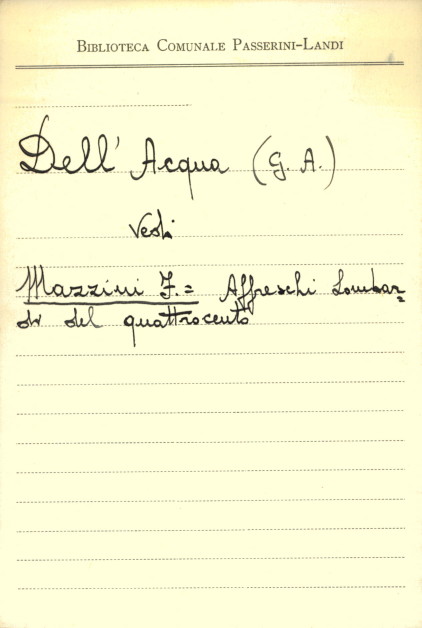 BIBLIOTECA COMUNALE PASSERINI-LANDI
Dell' Acqua (G. A.)
Vedi
Mazzini F. = Affreschi Lombar=
di del quattrocento